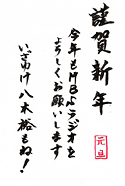 謹賀新年
元旦
今年もMBSラジオを
よろしくお願いします
いさめけ八木裕もね!